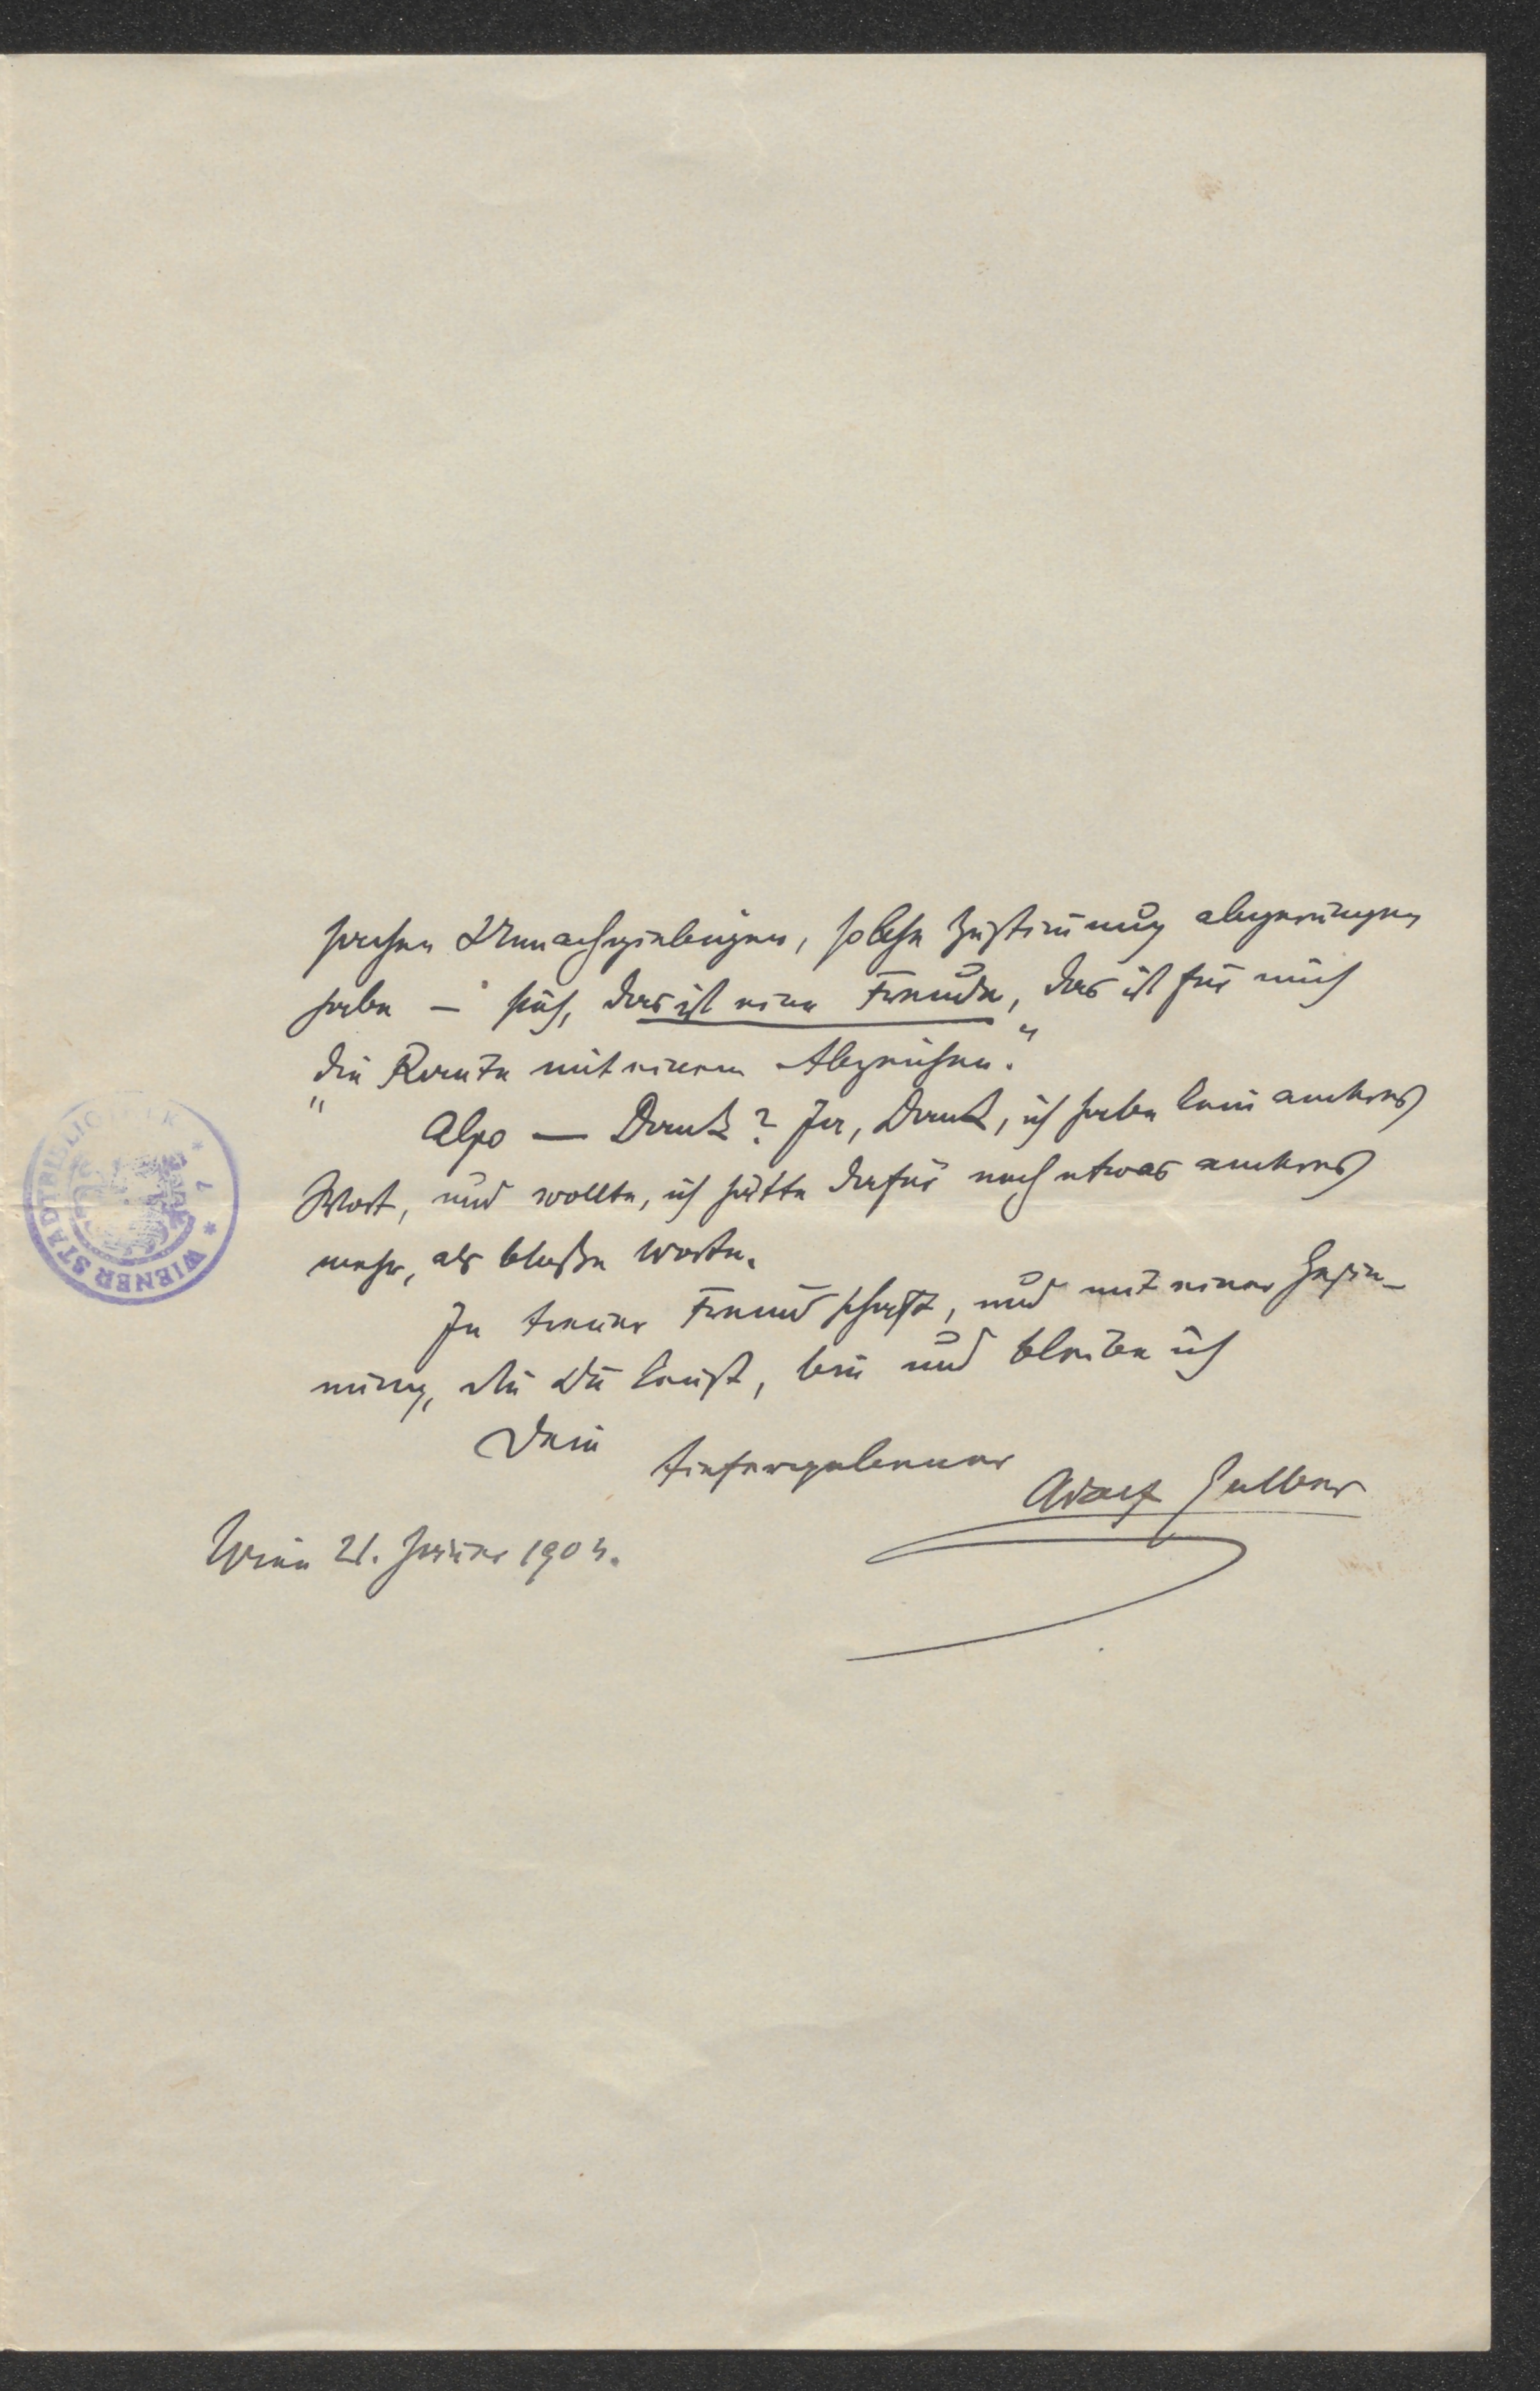 solche Zustimmung abgerungen
habe – sieh, das ist eine Freude, das ist für mich
„die Rente mit einem Abzeichen."
Also — Dank? Ja, Dank, ich habe kein anderes
Wort, und wollte, ich hätte dafür noch etwas anderes
mehr, als bloße Worte.
In treuer Freundschaft, und mit einer Gesin-
nung, die Du kennst, bin und bleibe ich
Dein tiefergebener
Adolf Gelber
Wien 21. Jänner 1904.
WIENER STADTBIBLIOTHEK * 7 *